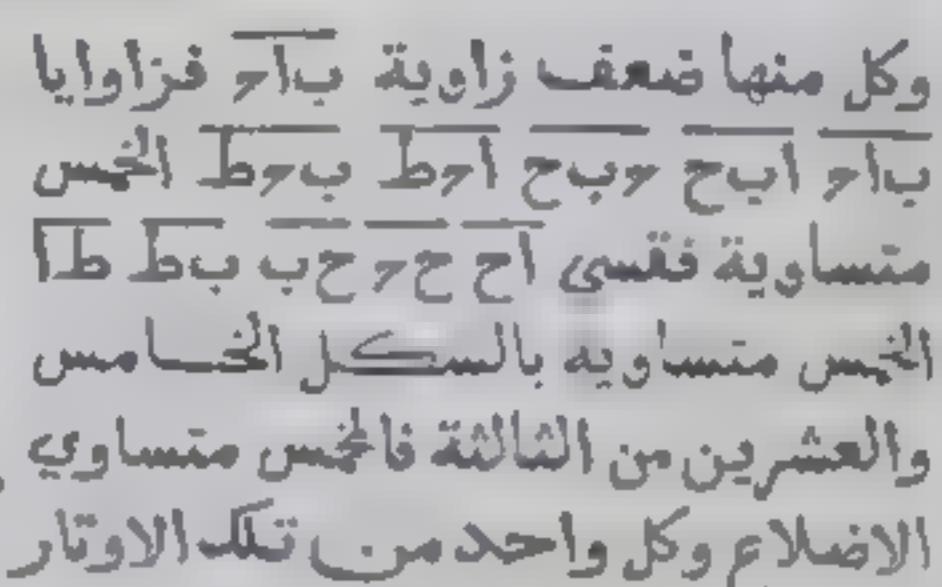 وكل منها ضعف زاوية باح فزاوايا
باح ابح حبح احط بحط الخمس
متساوية فقسى اح حح حب بط طا
الخمس متساويه بالسكل الخامس
والعشرين من الثالثة فالمخمس متساوي
الاضلاع وكل واحد من تلك الاوتار